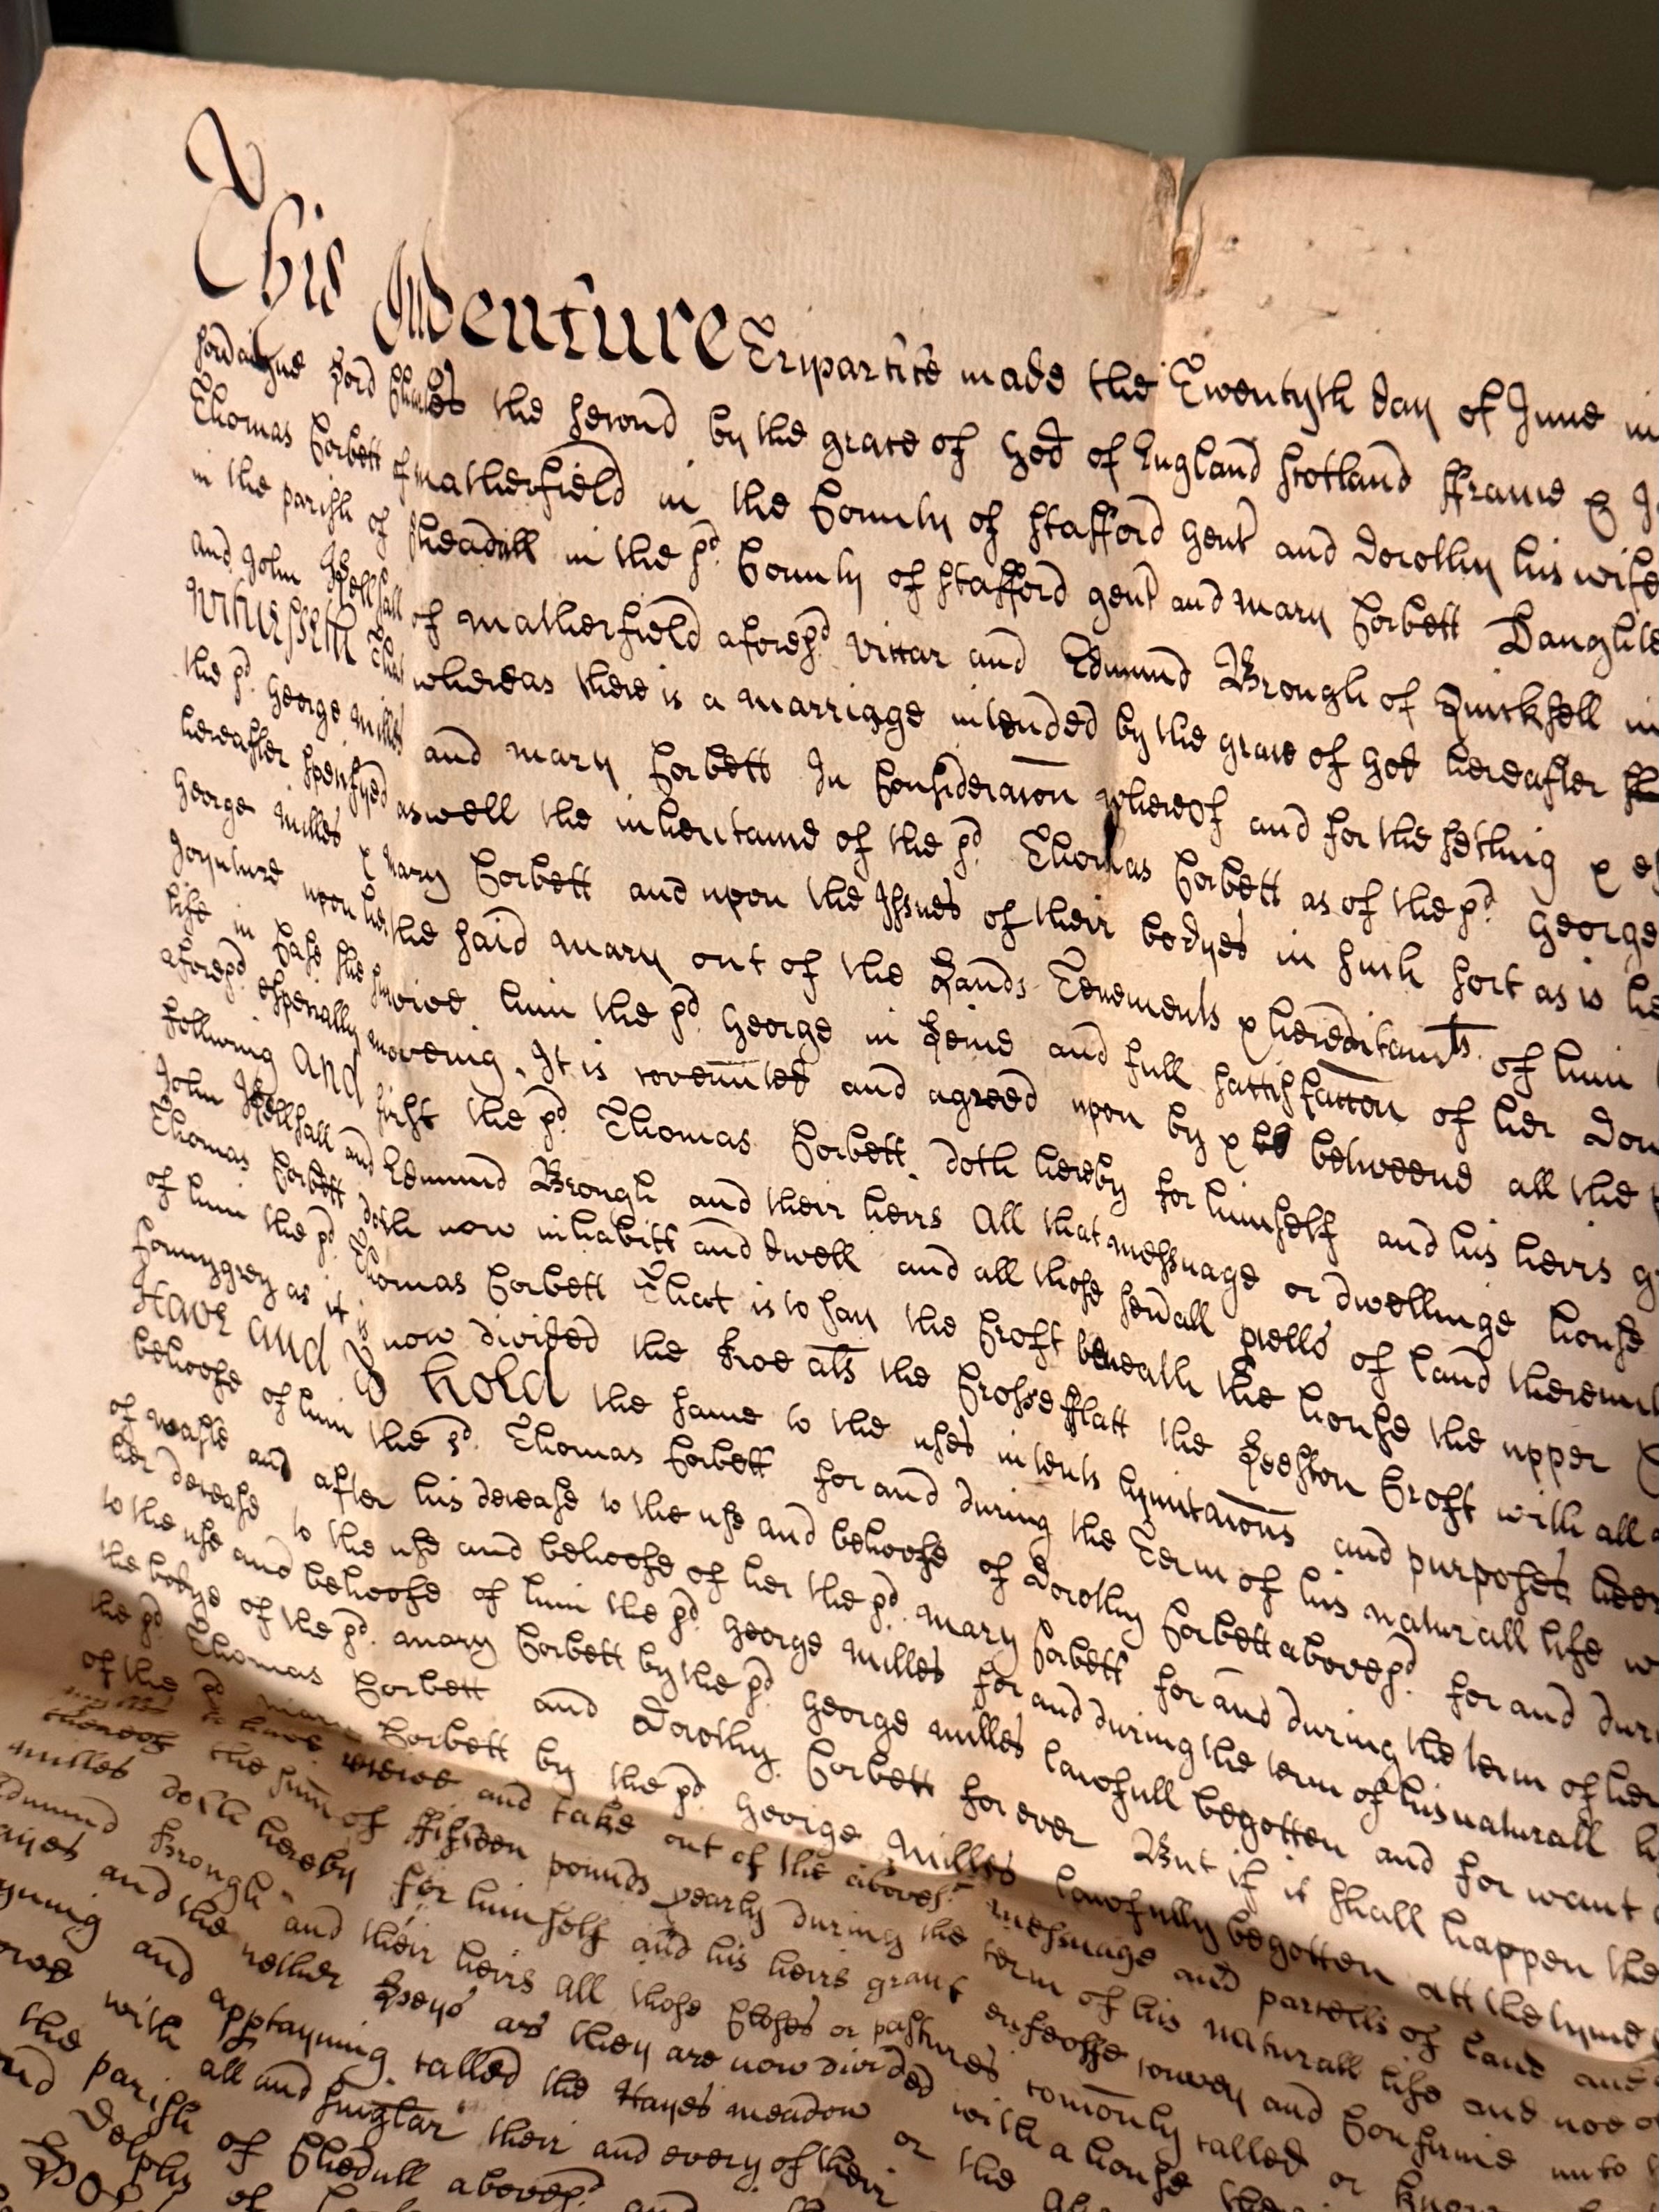 This Indenture Tripartite made the Twentyth day of June in
Charles the second by the grace of God of England Scotland ffrance &
Thomas Corbett of matherfield in the County of Stafford gent and Dorothy his wife
in the parish of Cheadull in the sd. County of Stafford gent and mary Corbett Daughte
and John of matherfield aforesd. viccar and Edmund Brough of Quicksell in
Witnesseth That whereas there is a marriage intended by the grace of god hereafter
the sd. George milles and mary Corbett In Consideracon whereof and for the setling &
hereafter specifyed aswell the inheritance of the sd. Thomas Corbett as of the sd. George
George milles & mary Corbett and upon the Issues of their bodyes in such sort as is he
Joynture upon her the said mary out of the Lands Tenements & hereditamts. of him
life in Case she survive him the sd. George in Leiue and full sattisfaccon of her Dow
aforesd. especially moveing, It is covennted and agreed upon by & betweene all the
follwing And first the sd. Thomas Corbett doth hereby for himself and his heirs g
John and Edmund Brough and their heirs All that messuage or dwellinge house
Thomas Corbett doth now inhabitt and dwell and all those sevrall pcells of land thereunt
of him the sd. Thomas Corbett That is to say the Croft beneath the house the upper
as it is now divided the als the Crosse fflatt the Leeston Croft with all
Have and To hold the same to the uses intents lymitacons and purposes
behoofe of him the sd. Thomas Corbett for and during the Term of his naturall life
of waste and after his decease to the use and behoofe of Dorothy Corbett abovesd. for and dur
her decease to the use and behoofe of her the sd. mary Corbett for and during the term of her
to the use and behoofe of him the sd. George milles for and during the term of his naturall
the bodye of the sd. mary Corbett by the sd. George milles lawfull begotten and for want
the sd. Thomas Corbett and Dorothy Corbett for ever But if it shall happen the
of the sd. mary Corbett by the sd. George milles lawfully begotten att the tyme
and take out of the abovesd. messuage and parcells of land and
thereof the sum of ffifteen pounds yearly during the term of his naturall life and noe
milles doth hereby for himself and his heirs grant enfeoffe convey and Confirme unto
Edmund Brough and their heirs All those Closes or pastures comonly called or know
and the nether Leys as they are now divided with a house
and apptayning called the Hayes meadow or the
with all and singlar their and every of their
the parish of Chedull abovesd. and